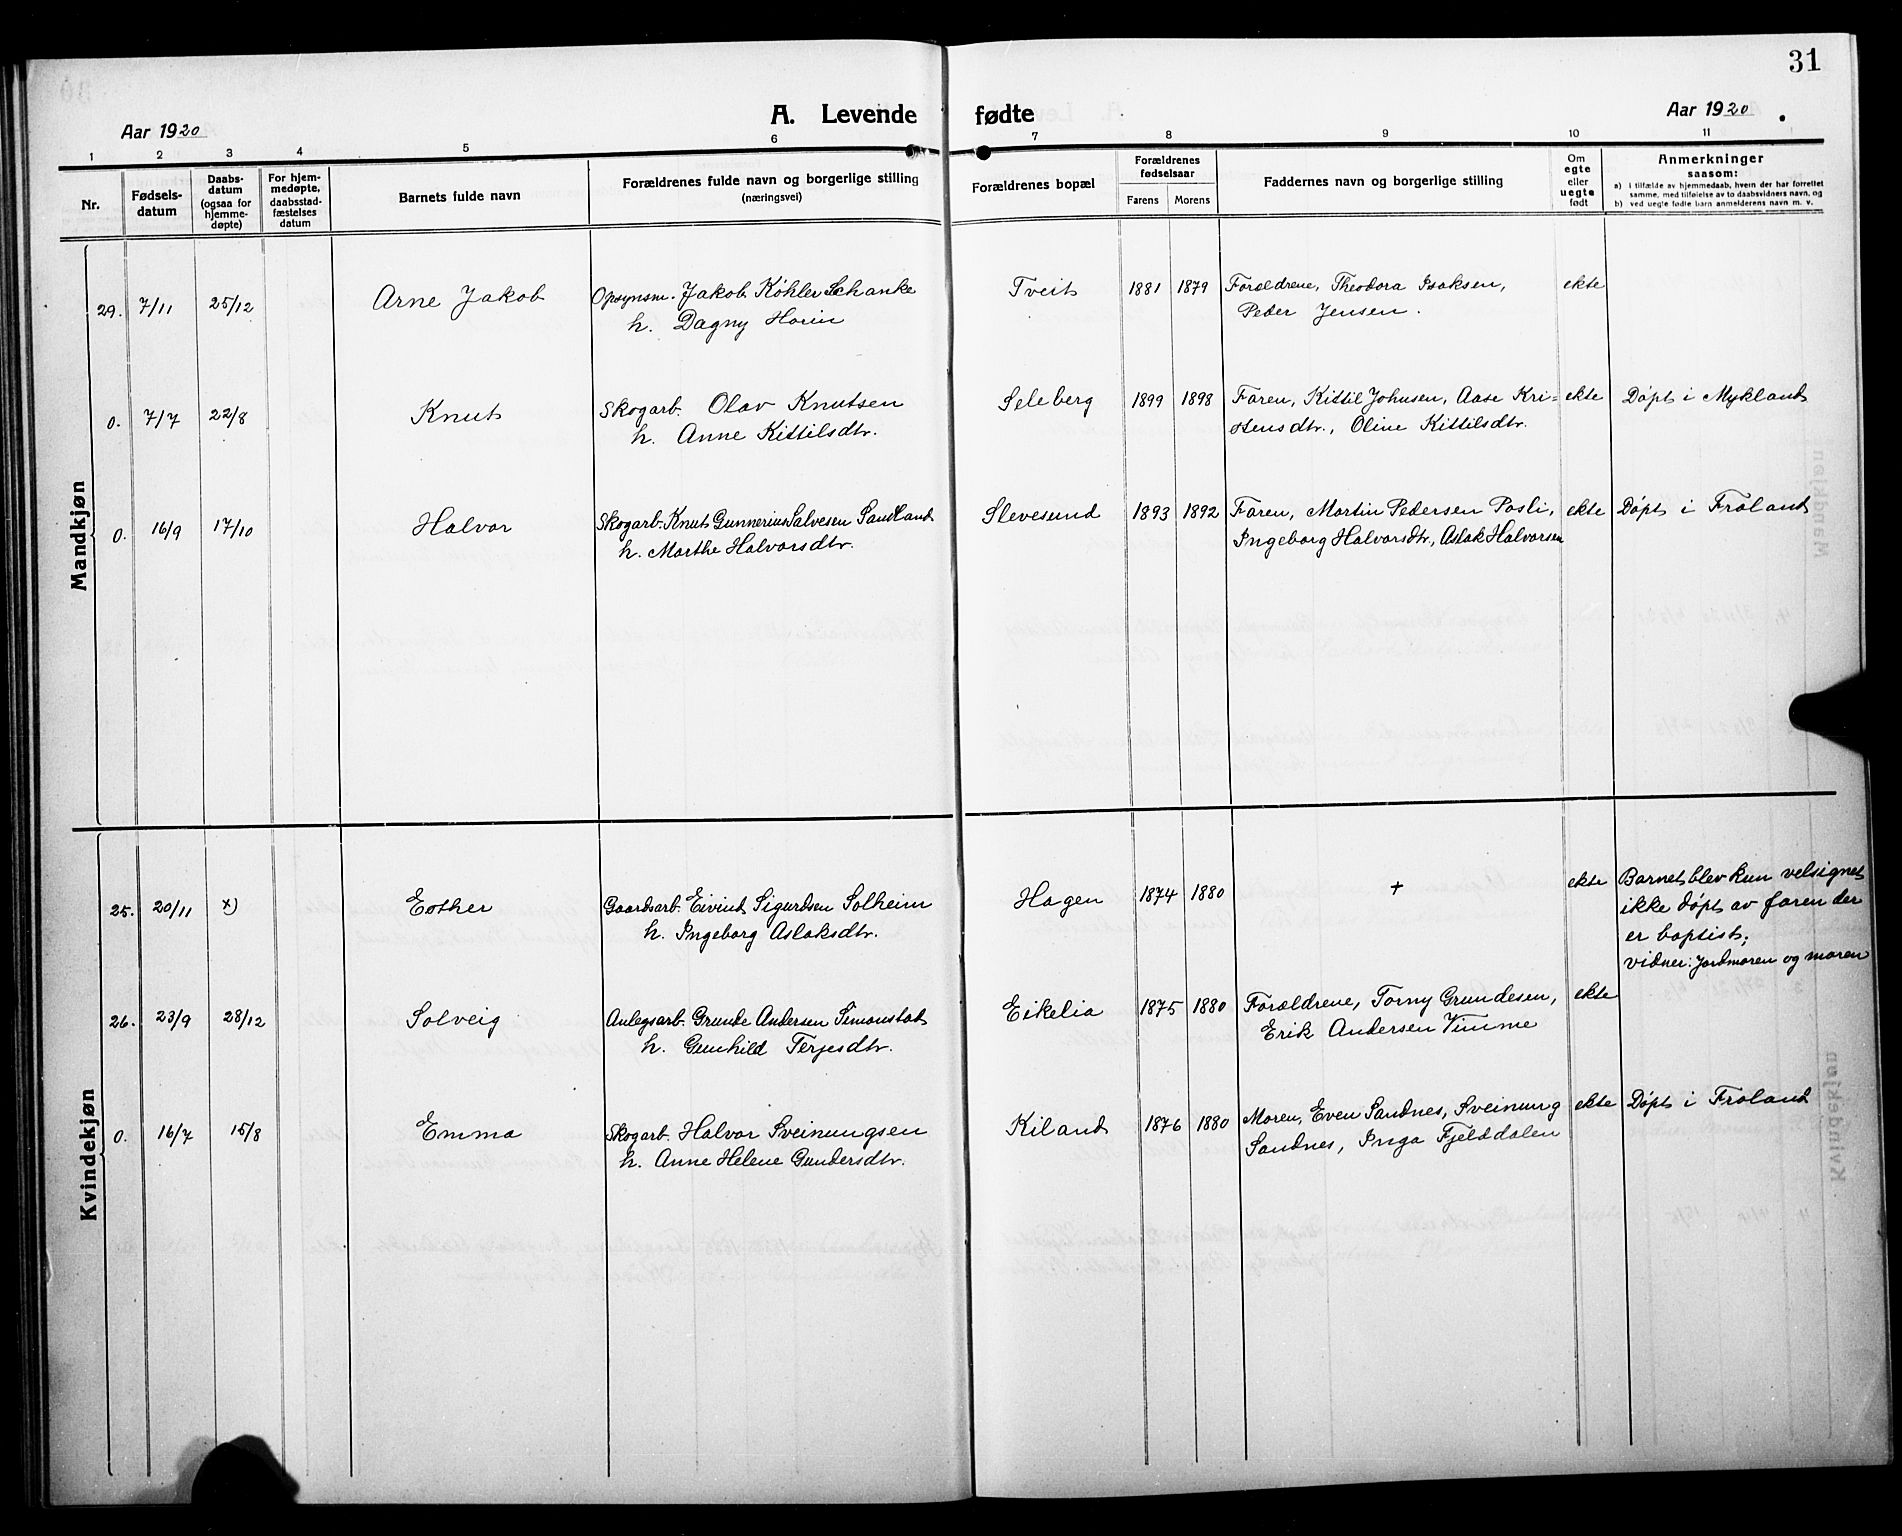 31
A. Levende fødte
Aar 1920
Aar 1920
1 2 3 4 5 6 7 8 9 10 11
Nr.
Fødsels-
datum
Daabs-
datum
(ogsaa for
hjemme-
døpte)
For hjem-
medøpte,
daabsstad-
fæstelses
datum
Barnets fulde navn
Forældrenes fulde navn og borgerlige stilling
(næringsvei)
Forældrenes bopæl
Forældrenes
fødselsaar
Farens Morens
Faddernes navn og borgerlige stilling
Om
egte
eller
uegte
født
Anmerkninger
saasom:
a) i tilfælde av hjemmedaab, hvem der har forrettet
samme, med tilføielse av to daabsvidners navn, og
b) ved uegte fødte barn anmelderens navn m. v.
Mandkjøn
29. 7/11 25/12 Arne Jakob Opsynsm. Jakob Køhler Schanke Tveit 1881 1879 Forældrene, Theodora Isaksen, ekte
h. Dagny Horin Peder Jensen.
0. 7/7 22/8 Knut Skogarb. Olav Knutsen Seleberg 1899 1898 Faren, Kittil Johnsen, Aase Kri- ekte Døpt i Mykland
h. Anne Kittilsdtr. stensdtr., Oline Kittilsdtr.
0. 16/9 17/10 Halvor Skogarb. Knut Gunnerius Salvesen Sandland Slevesund 1893 1892 Faren, Martin Pedersen Posli, ekte Døpt i Froland
h. Marthe Halvorsdtr. Ingeborg Halvorsdtr., Aslak Halvorsen
Kvindekjøn
25. 20/11 x) Esther Gaardsarb. Eivind Sigurdsen Solheim Hagen 1874 1880 + ekte Barnet blev kun velsignet
h. Ingeborg Aslaksdtr. ikke døpt av faren der
er baptist;
vidner: Jordmoren og moren
26. 23/9 28/12 Solveig Anlegsarb. Grunde Andersen Simonstad Eikelia 1875 1880 Forældrene, Torny Grundesen, ekte
h. Gunhild Terjesdtr. Erik Andersen Vimme
0. 16/7 15/8 Emma Skogarb. Halvor Sveinungsen Kiland 1876 1880 Moren, Even Sandnes, Sveinung ekte Døpt i Froland
h. Anne Helene Gundersdtr. Sandnes, Inga Fjelddalen